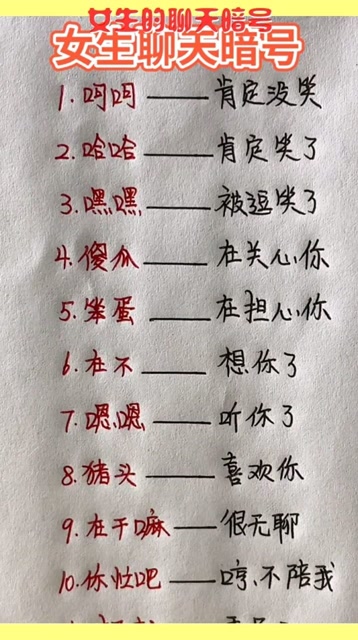 女生的聊天暗号
女生聊天暗号
1.呵呵——肯定没笑
2.哈哈——肯定笑了
3.嘿嘿——被逗笑了
4.傻瓜——在关心你
5.笨蛋——在担心你
6.在不——想你了
7.嗯嗯——听你了
8.猪头——喜欢你
9.在干嘛——很无聊
10.你忙吧——哼,不陪我